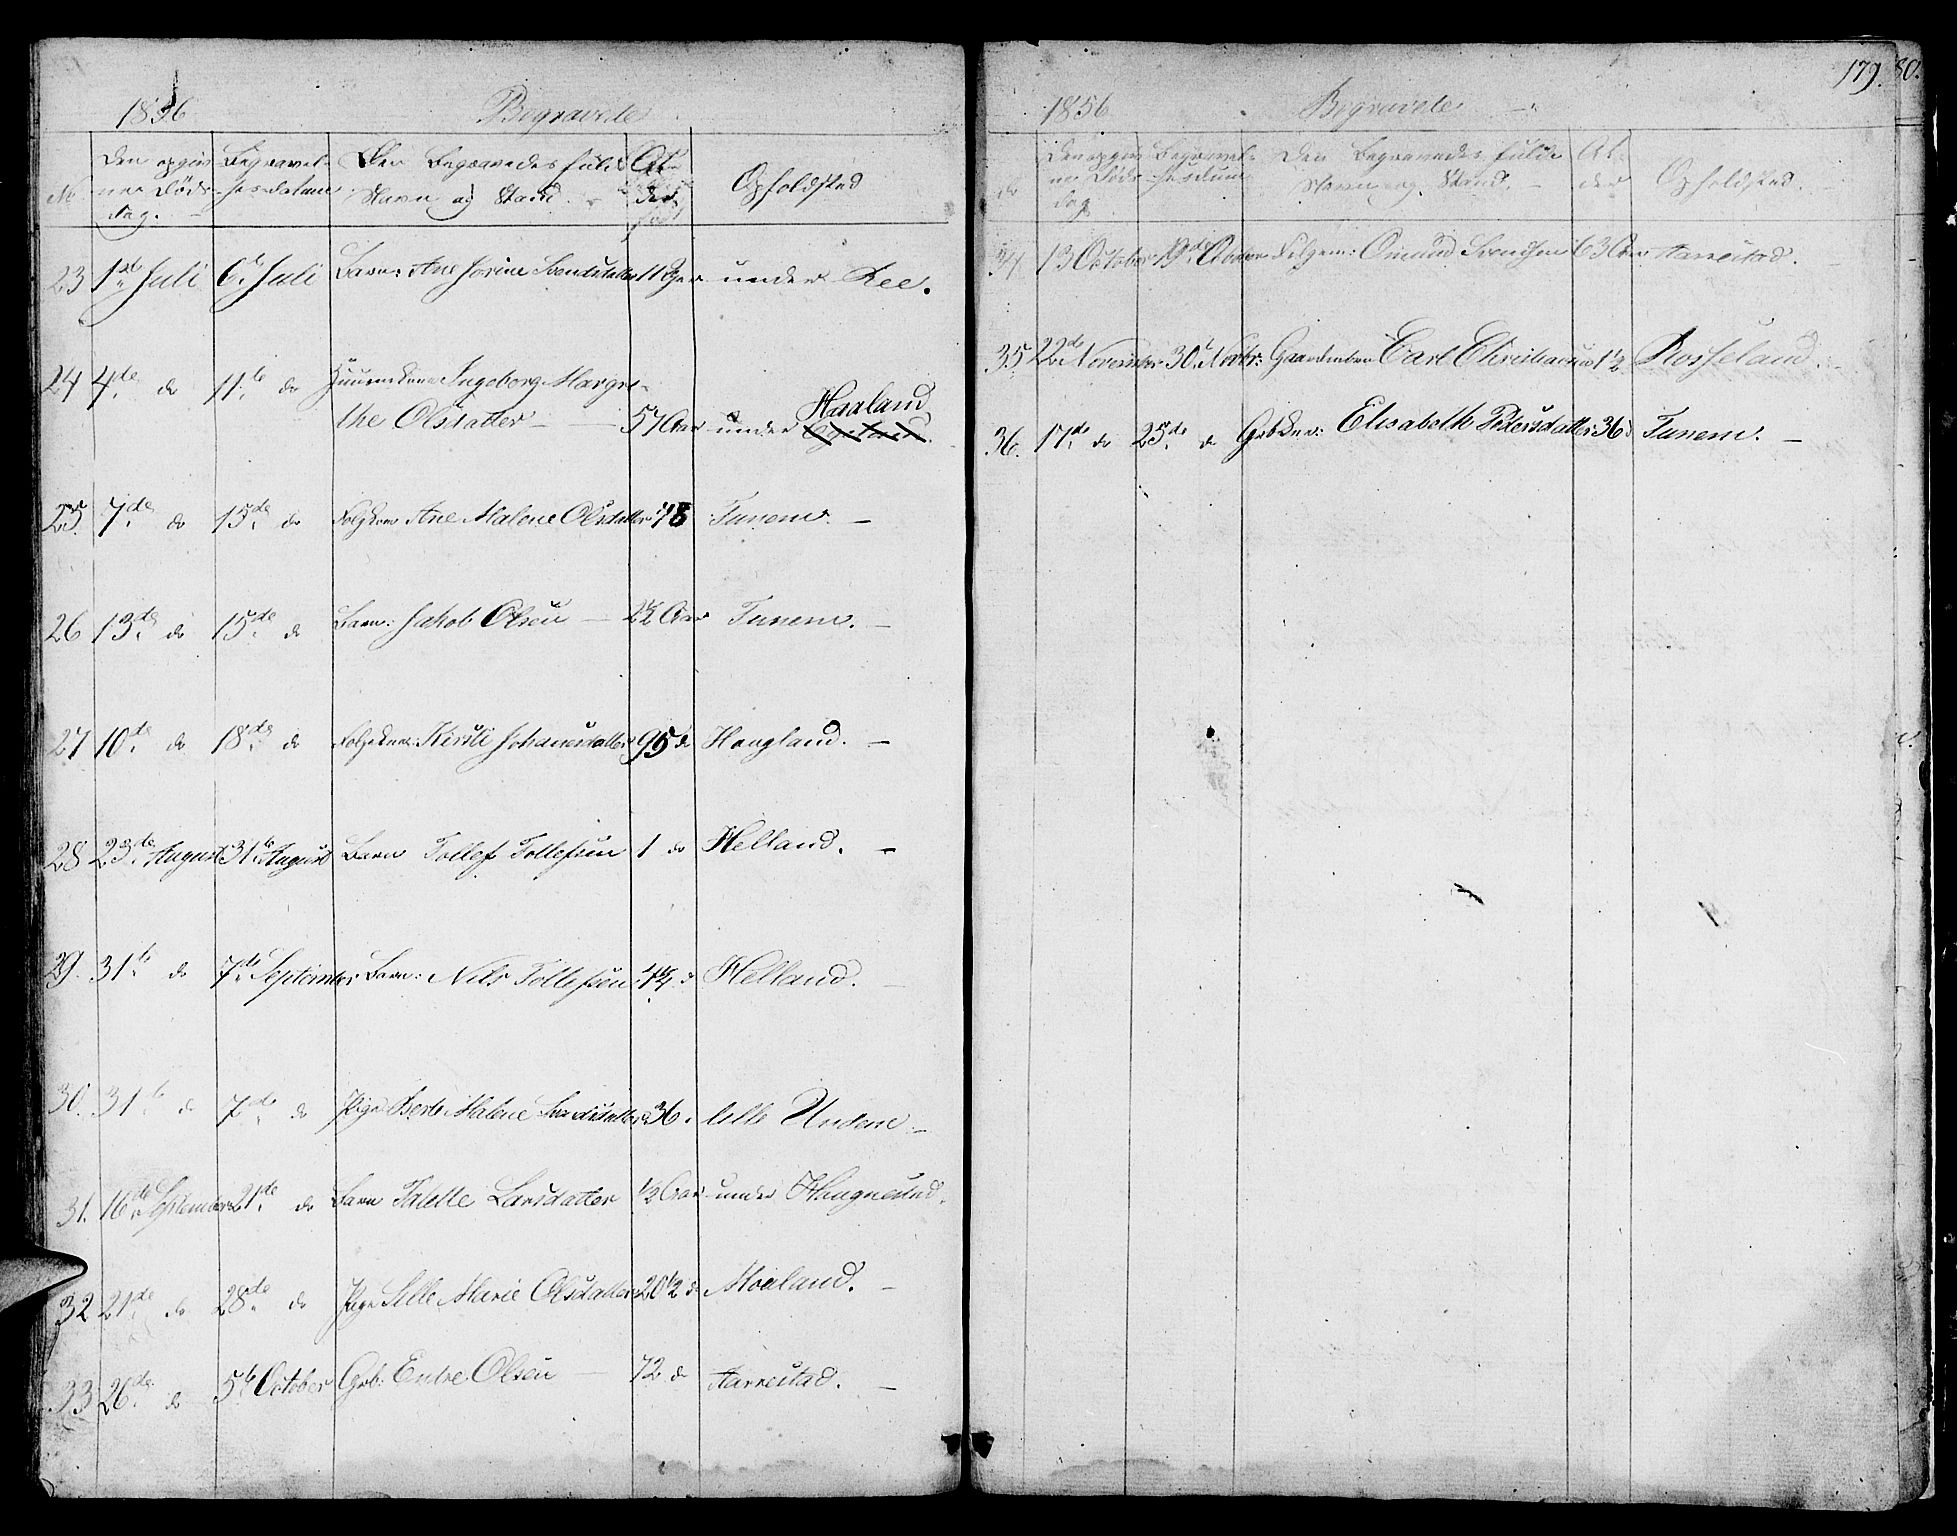 1856 Begravede
No Den opgivne Døds Dag. Begravelsesdatum Den Begravedes fulde Navn og Stand. Alder Opholdsted
23 1ste Juli 6te Juli Barn: Ane Serine Svendsdatter 11 under Ree.
24 4de do 11te do Huusmkone Ingeborg Margre-
the Olsdatter — 57 Aar under Haaland
25. 7de do 15de do Folgkone Ane Malene Olsdatter 78 Tunem. —
26 13de do 15de do Barn: Jakob Olsen — 2½ Aar Tunem. —
27 10de do 18de do Folgekone: Kirsti Johannesdatter 95 do Haugland. —
28 23de August 31te August Barn Tollef Tollefsen 1 do Helland. —
29. 31te do 7de September Barn: Nils Tollefsen 4¼ d Helland. —
30. 31te do 7de do Pige Berte Malene Svendsdatter 36. lille Undem —
31. 16de September 21de do Barn Talette Larsdatter ½ Aar under Haugnesund.
32 21de do 28de do Pige Sille Marie Olsdatter 20½ d Moaland. —
33 26de do 5te October Grb: Endre Olsen — 72 do Aarrestad. —
179. 80.
1856 Begravede —
do Den opgivne Døds dag Begravelsesdatum Den Begravedes fulde Navn og Stand. — Alder Opholdsted.
34 13 October 19de October Folgem: Omund Svendsen 63 Aar Aarrestad.
35. 22de November 30te Novbr: Gaardmbarn Carl Christianus 1½ Rosseland. —
36. 17de do 25de do Grbkone: Elisabeth Pedersdatter 36 d Tunem. —